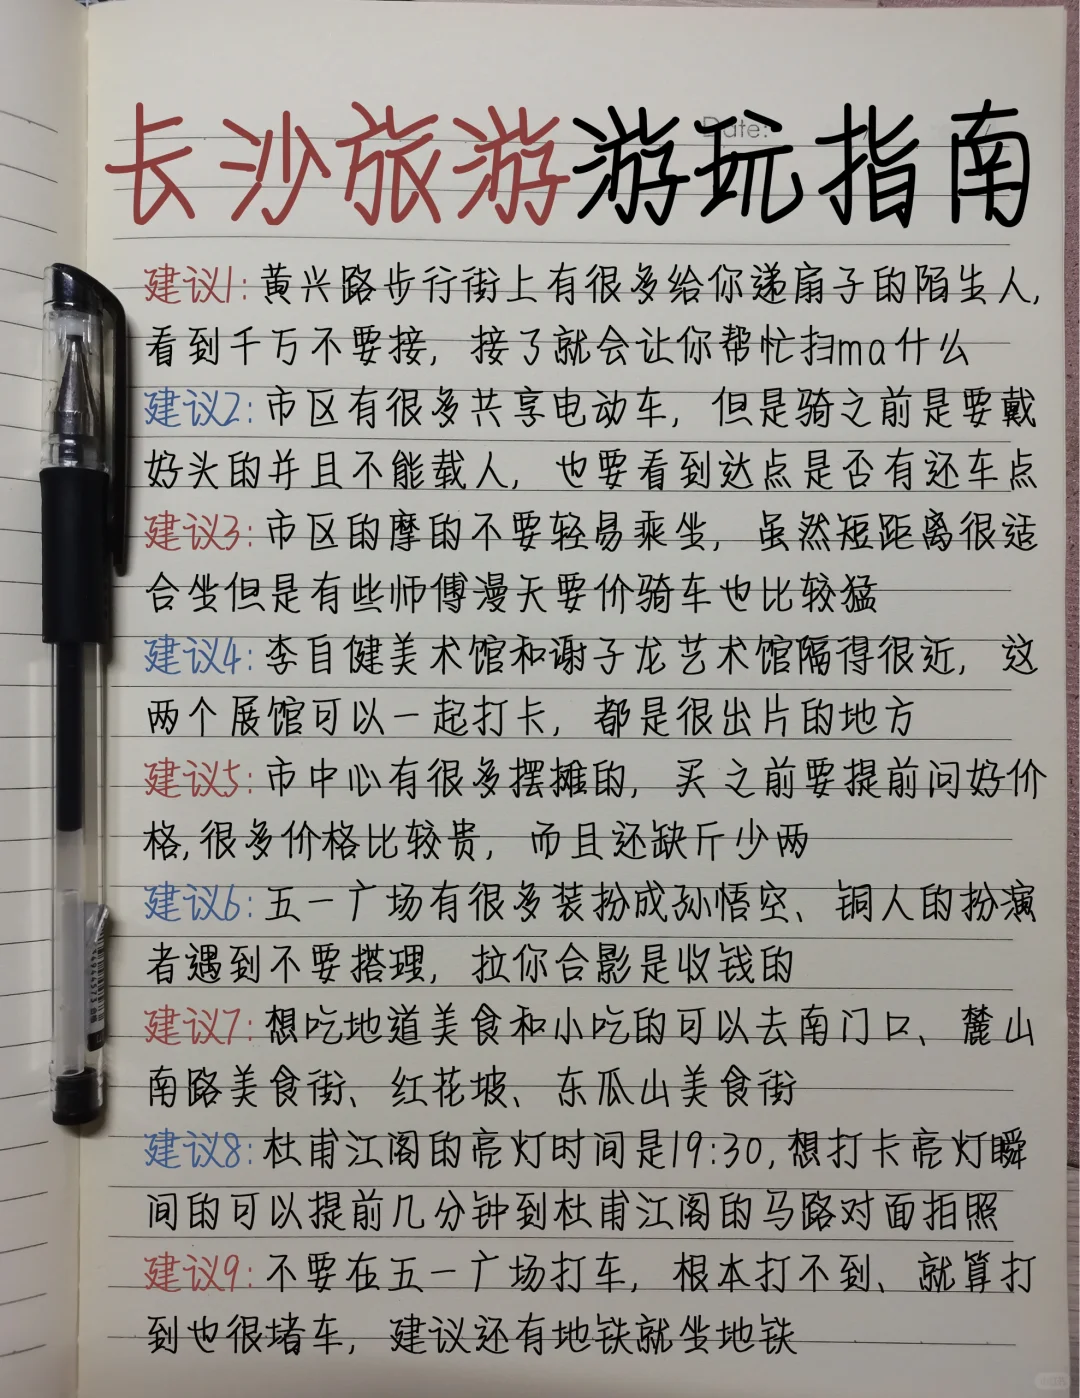 Date:
长沙旅游游玩指南
建议1:黄兴路步行街上有很多给你递扇子的陌生人,
看到千万不要接，接了就会让你帮忙扫ma什么
建议2:市区有很多共享电动车，但是骑之前是要戴
好头的并且不能载人，也要看到达点是否有还车点
建议3:市区的摩的不要轻易乘坐，虽然短距离很适
合坐但是有些师傅漫天要价骑车也比较猛
建议4:李自健美术馆和谢子龙艺术馆隔得很近，这
两个展馆可以一起打卡，都是很出片的地方
建议5:市中心有很多摆摊的，买之前要提前问好价
格,很多价格比较贵，而且还缺斤少两
建议6:五一广场有很多装扮成孙悟空、铜人的扮演
者遇到不要搭理，拉你合影是收钱的
建议7:想吃地道美食和小吃的可以去南门口、麓山
南路美食街、红花坡、东瓜山美食街
建议8:杜甫江阁的亮灯时间是19:30,想打卡亮灯瞬
间的可以提前几分钟到杜甫江阁的马路对面拍照
建议9:不要在五一广场打车，根本打不到、就算打
到也很堵车，建议还有地铁就坐地铁